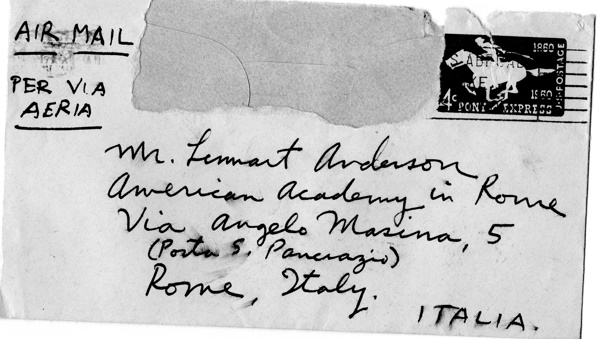 AIR MAIL
PER VIA
AERIA
1860
1960
4¢ PONY EXPRESS
U.S. POSTAGE
Mr. Lennart Anderson
American Academy in Rome
Via Angelo Masina, 5
(Porta S. Pancrazio)
Rome, Italy.
ITALIA.